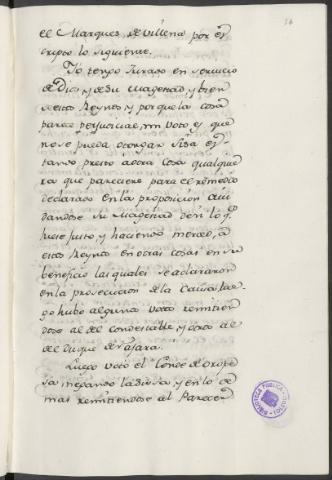 36
el Marques de Villena por es
cripto lo siguiente.
Yo tengo Jurado en servicio
de Dios y de Su Magestad y bien
destos Reynos y porque la cosa
parece perjuicial, mi Voto es que
no se pueda otorgar Sisa es
tando presto à otra Cosa qualquie
ra que pareciere para el remedio
declarado en la proposicion ayu
dandose Su Magestad de lo q.
fuese justo y haciendo merced, à
estos Reynos en otras cosas en su
beneficio las quales se aclararon
en la prosecucion de la Causa lue
go hubo algunos Votos remitien
dose al del Condestable, y otros al
del Duque de Najara.
Luego Votò el Conde de Orope
sa negando la Sisa, y en lo de
mas remitiendose al Parecer
BIBLIOTECA PUBLICA
TOLEDO